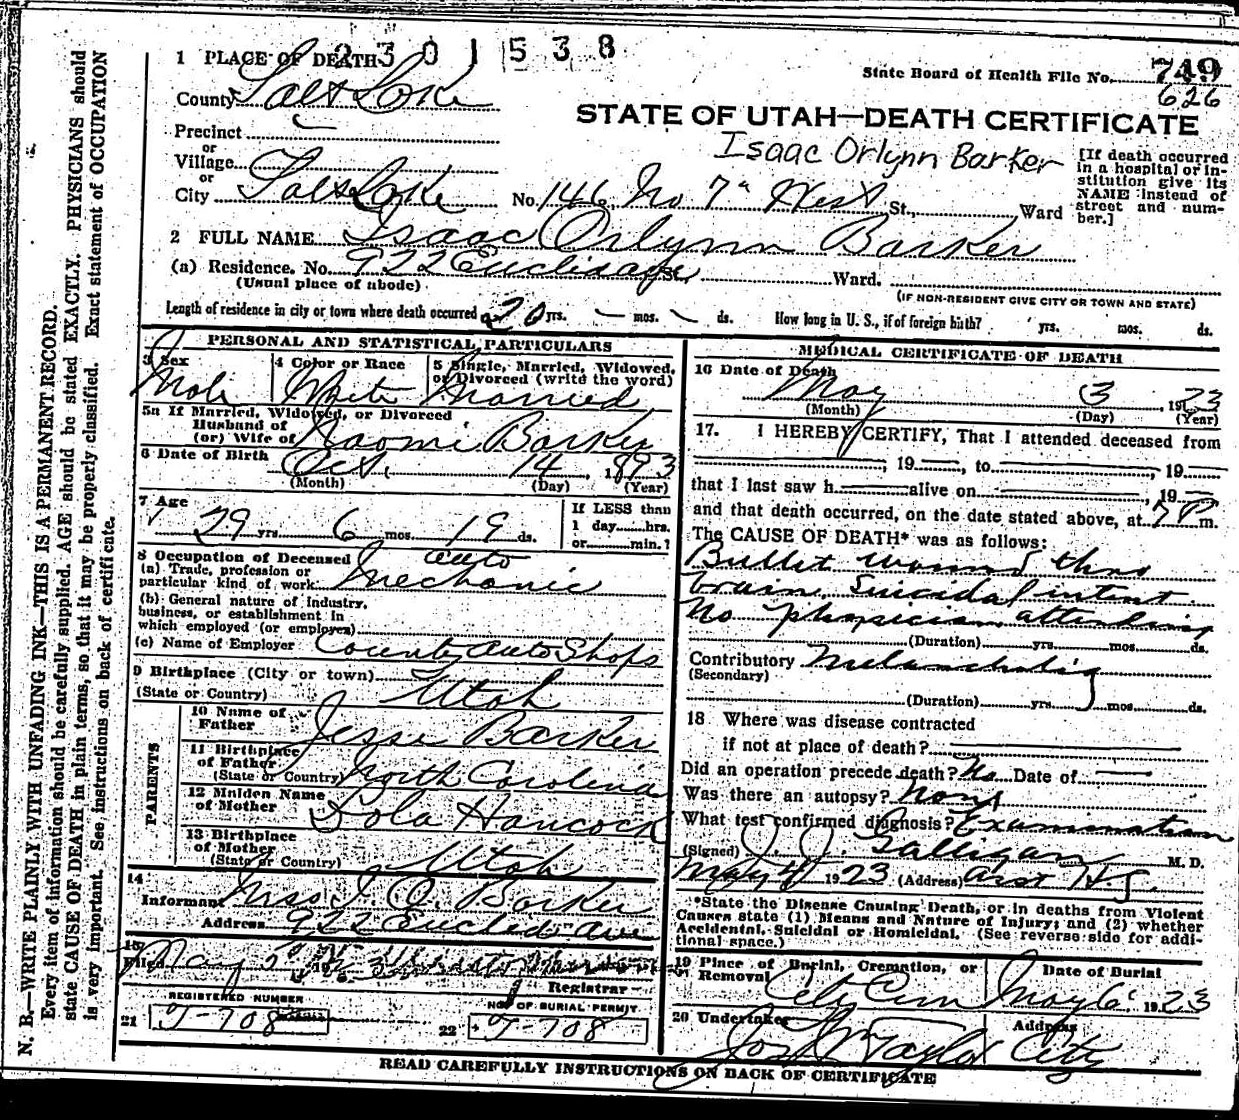 2301538
1 PLACE OF DEATH
State Board of Health File No. 749
626
County Salt Lake
STATE OF UTAH—DEATH CERTIFICATE
Precinct
or
Village
or
City Salt Lake No. 146 No 7" West St., Ward
Isaac Orlynn Barker
[If death occurred in a hospital or institution give its NAME instead of street and number.]
2 FULL NAME Isaac Orlynn Barker
(a) Residence. No. 922 Euclid ave St., Ward.
(Usual place of abode)
(IF NON-RESIDENT GIVE CITY OR TOWN AND STATE)
Length of residence in city or town where death occurred 20 yrs. — mos. — ds. How long in U. S., if of foreign birth? yrs. mos. ds.
PERSONAL AND STATISTICAL PARTICULARS
3 Sex Male
4 Color or Race White
5 Single, Married, Widowed, or Divorced (write the word) Married
5a If Married, Widowed, or Divorced
Husband of
(or) Wife of Naomi Barker
6 Date of Birth Oct. 14 1893
(Month) (Day) (Year)
7 Age 29 yrs 6 mos 19 ds.
If LESS than
1 day......hrs.
or......min.?
8 Occupation of Deceased
(a) Trade, profession or
particular kind of work auto Mechanic
(b) General nature of industry,
business, or establishment in
which employed (or employer)
(c) Name of Employer County Auto Shops
9 Birthplace (City or town)
(State or Country) Utah
PARENTS
10 Name of
Father Jesse Barker
11 Birthplace
of Father
(State or Country) North Carolina
12 Maiden Name
of Mother Lola Hancock
13 Birthplace
of Mother
(State or Country) Utah
14
Informant Mrs I. O. Barker
Address 922 Euclid ave
15
Filed May 5
Registrar
REGISTERED NUMBER
21 T-708
NO. OF BURIAL PERMIT
22 T-708
MEDICAL CERTIFICATE OF DEATH
16 Date of Death
May 3, 1923
(Month) (Day) (Year)
17. I HEREBY CERTIFY, That I attended deceased from
, 19 , to , 19
that I last saw h alive on , 19
and that death occurred, on the date stated above, at 7 P m.
The CAUSE OF DEATH* was as follows:
Bullet wound thro
brain, Suicidal intent.
No physician attending
(Duration) yrs. mos. ds.
Contributory Melancholia
(Secondary)
(Duration) yrs. mos. ds.
18 Where was disease contracted
if not at place of death?
Did an operation precede death? No Date of
Was there an autopsy? None
What test confirmed diagnosis? Examination
(Signed) J. J. Galligan M. D.
May 4 1923 (Address)
*State the Disease Causing Death, or in deaths from Violent
Causes state (1) Means and Nature of Injury; and (2) whether
Accidental, Suicidal or Homicidal. (See reverse side for additional space.)
19 Place of Burial, Cremation, or
Removal City Cem
Date of Burial
May 6 1923
20 Undertaker Jos Taylor
Address City
READ CAREFULLY INSTRUCTIONS ON BACK OF CERTIFICATE
N. B.—WRITE PLAINLY WITH UNFADING INK—THIS IS A PERMANENT RECORD.
Every item of information should be carefully supplied. AGE should be stated EXACTLY. PHYSICIANS should
state CAUSE OF DEATH in plain terms, so that it may be properly classified. Exact statement of OCCUPATION
is very important. See instructions on back of certificate.